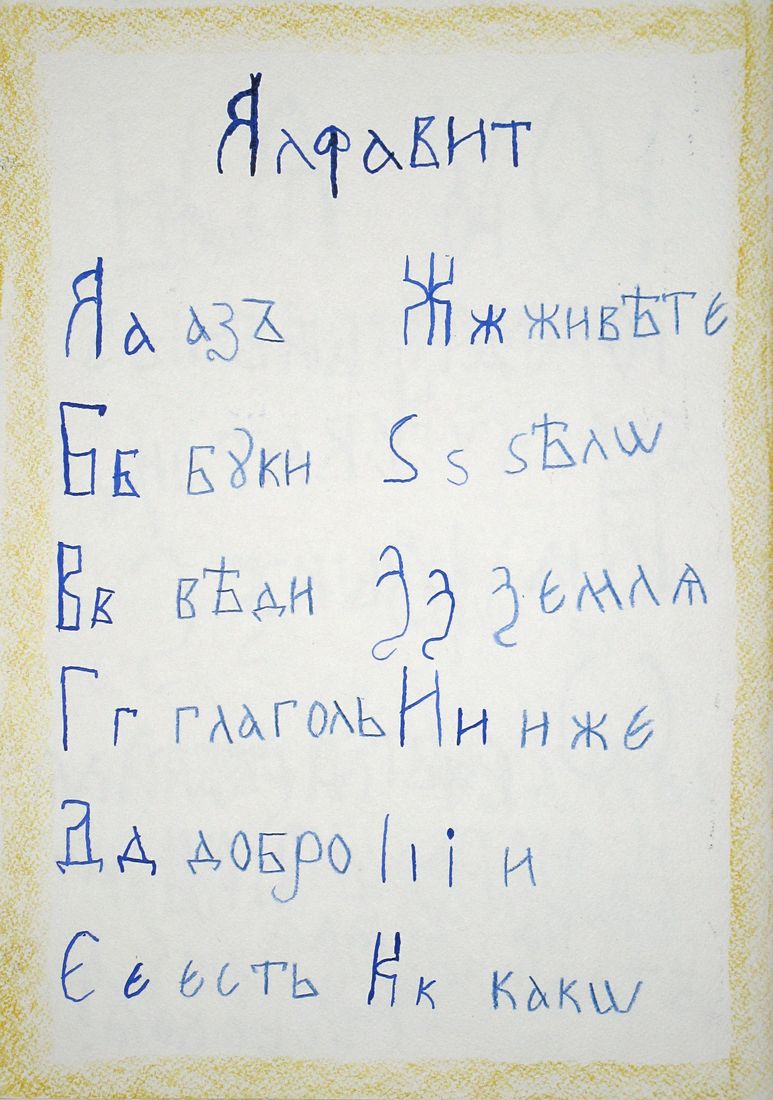 Алфавит
Аа азъ Жж живѣтє
Бб бꙋки Ѕѕ ѕѣлѡ
Вв вѣди Зз зємлѧ
Гг глаголь Ии ижє
Дд добро Іıі и
Єє єсть Кк какѡ